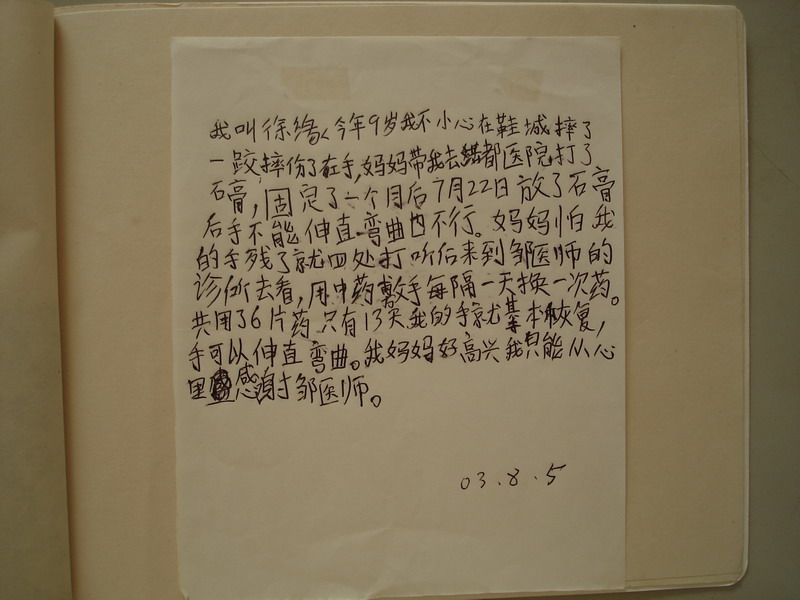 我叫徐缘,今年9岁我不小心在鞋城摔了
一跤,摔伤了左手,妈妈带我去成都医院打了
石膏,固定了一个月后7月22日放了石膏
后手不能伸直弯曲也不行。妈妈怕我
的手残了就四处打听后来到邹医师的
诊所去看,用中药敷手每隔一天换一次药。
共用了6片药只有13天我的手就基本恢复,
手可以伸直弯曲。我妈妈好高兴我只能从心
里感谢邹医师。
03.8.5